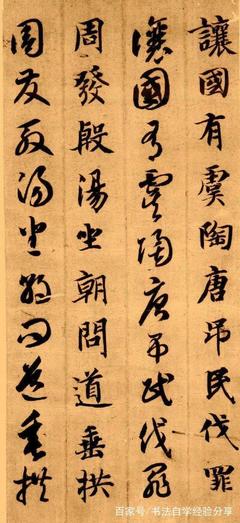 讓國有虞陶唐弔民伐罪
讓國有虞陶唐弔民伐罪
周發殷湯坐朝問道垂拱
周發殷湯坐朝問道垂拱
百家号/书法自学经验分享